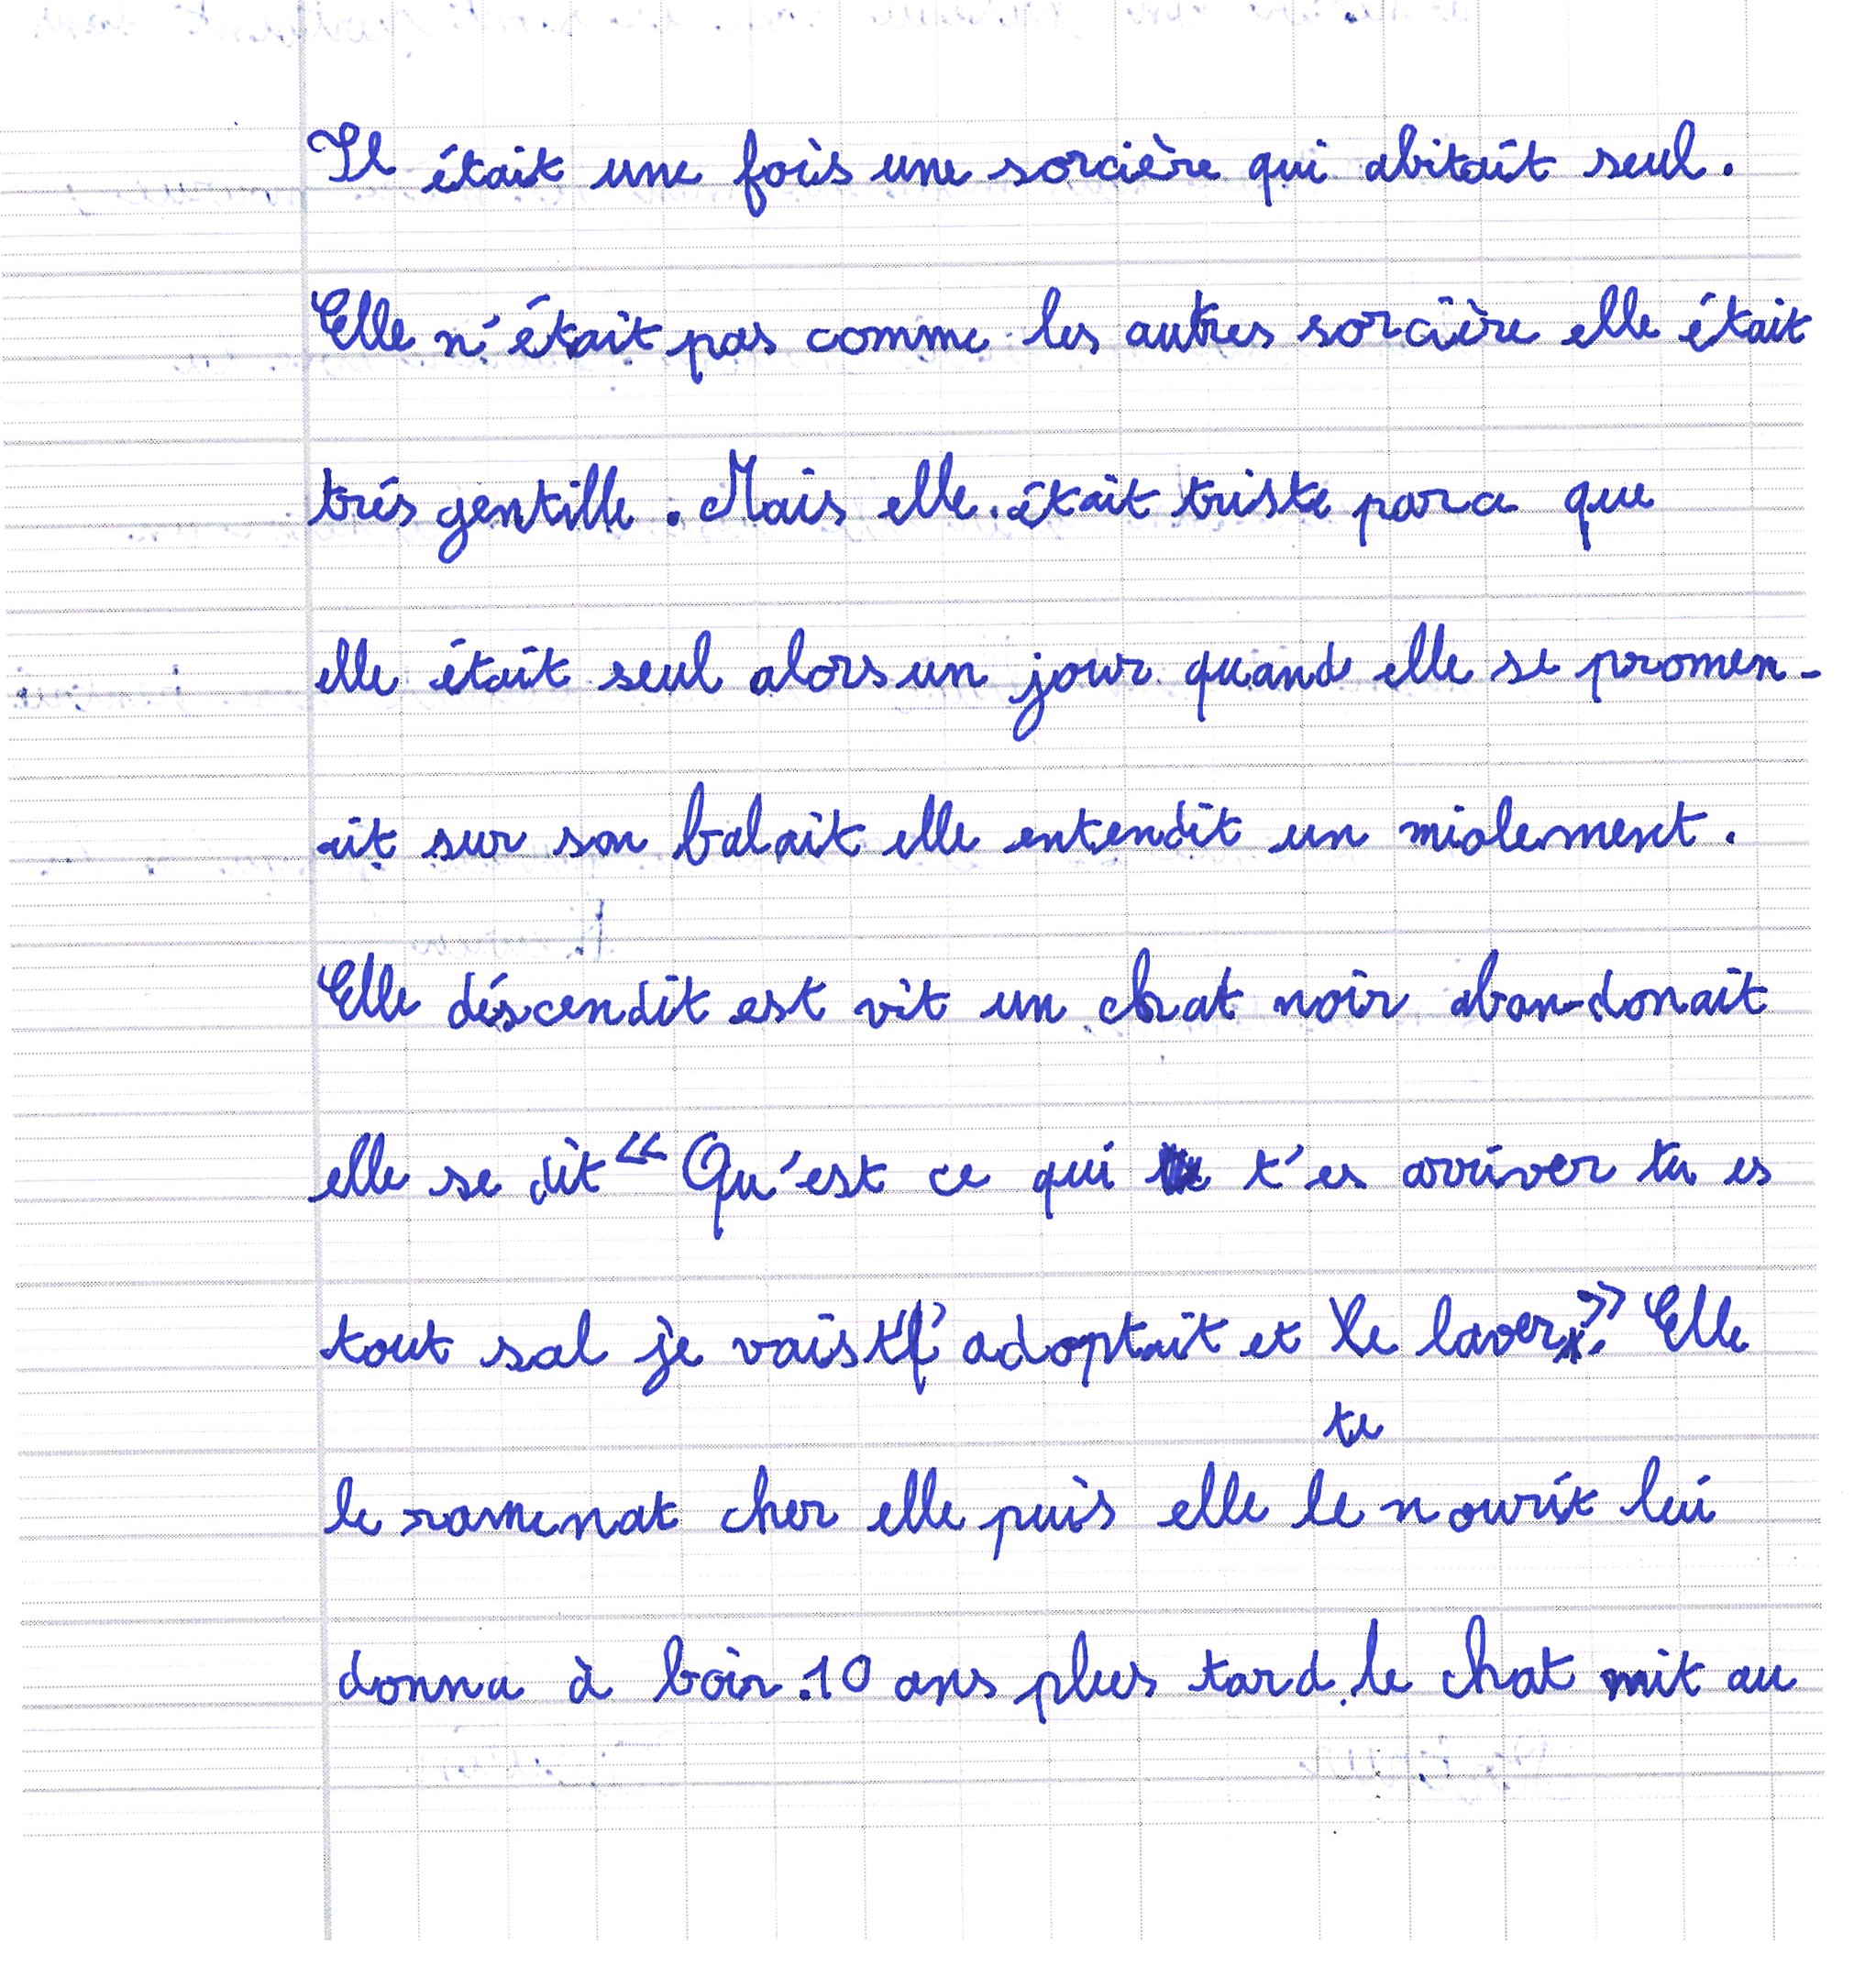 Il était une fois une sorcière qui abitait seul.
Elle n'était pas comme les autres sorcière elle était
trés gentille. Mais elle était triste parce que
elle était seul alors un jour quand elle se promen-
ait sur son balait elle entendit un miolement.
Elle déscendit est vit un chat noir aban-donait
elle se dit « Qu'est ce qui t'es arriver tu es
tout sal je vais t' adoptait et le laver. » Elle
te
le ramenat cher elle puis elle le nourit lui
donna à boir. 10 ans plus tard le chat mit au